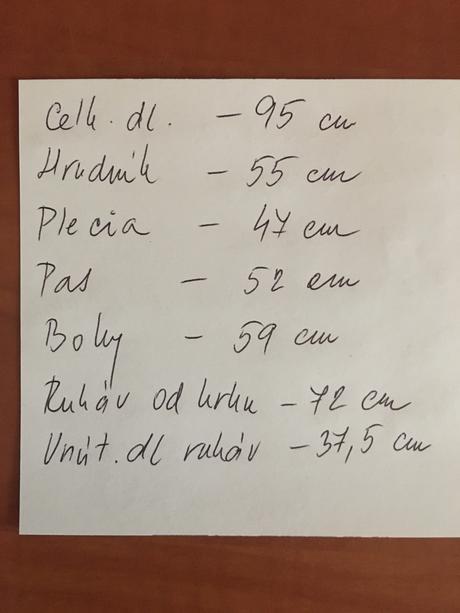 Celk. dl. - 95 cm
Hrudník - 55 cm
Plecia - 47 cm
Pas - 52 cm
Boky - 59 cm
Rukáv od krku - 72 cm
Vnút. dl rukáv - 37,5 cm